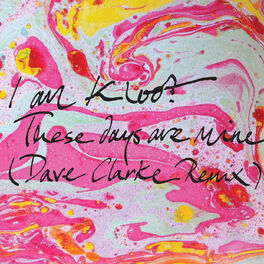 I am Kloot
These days are mine
(Dave Clarke Remix)